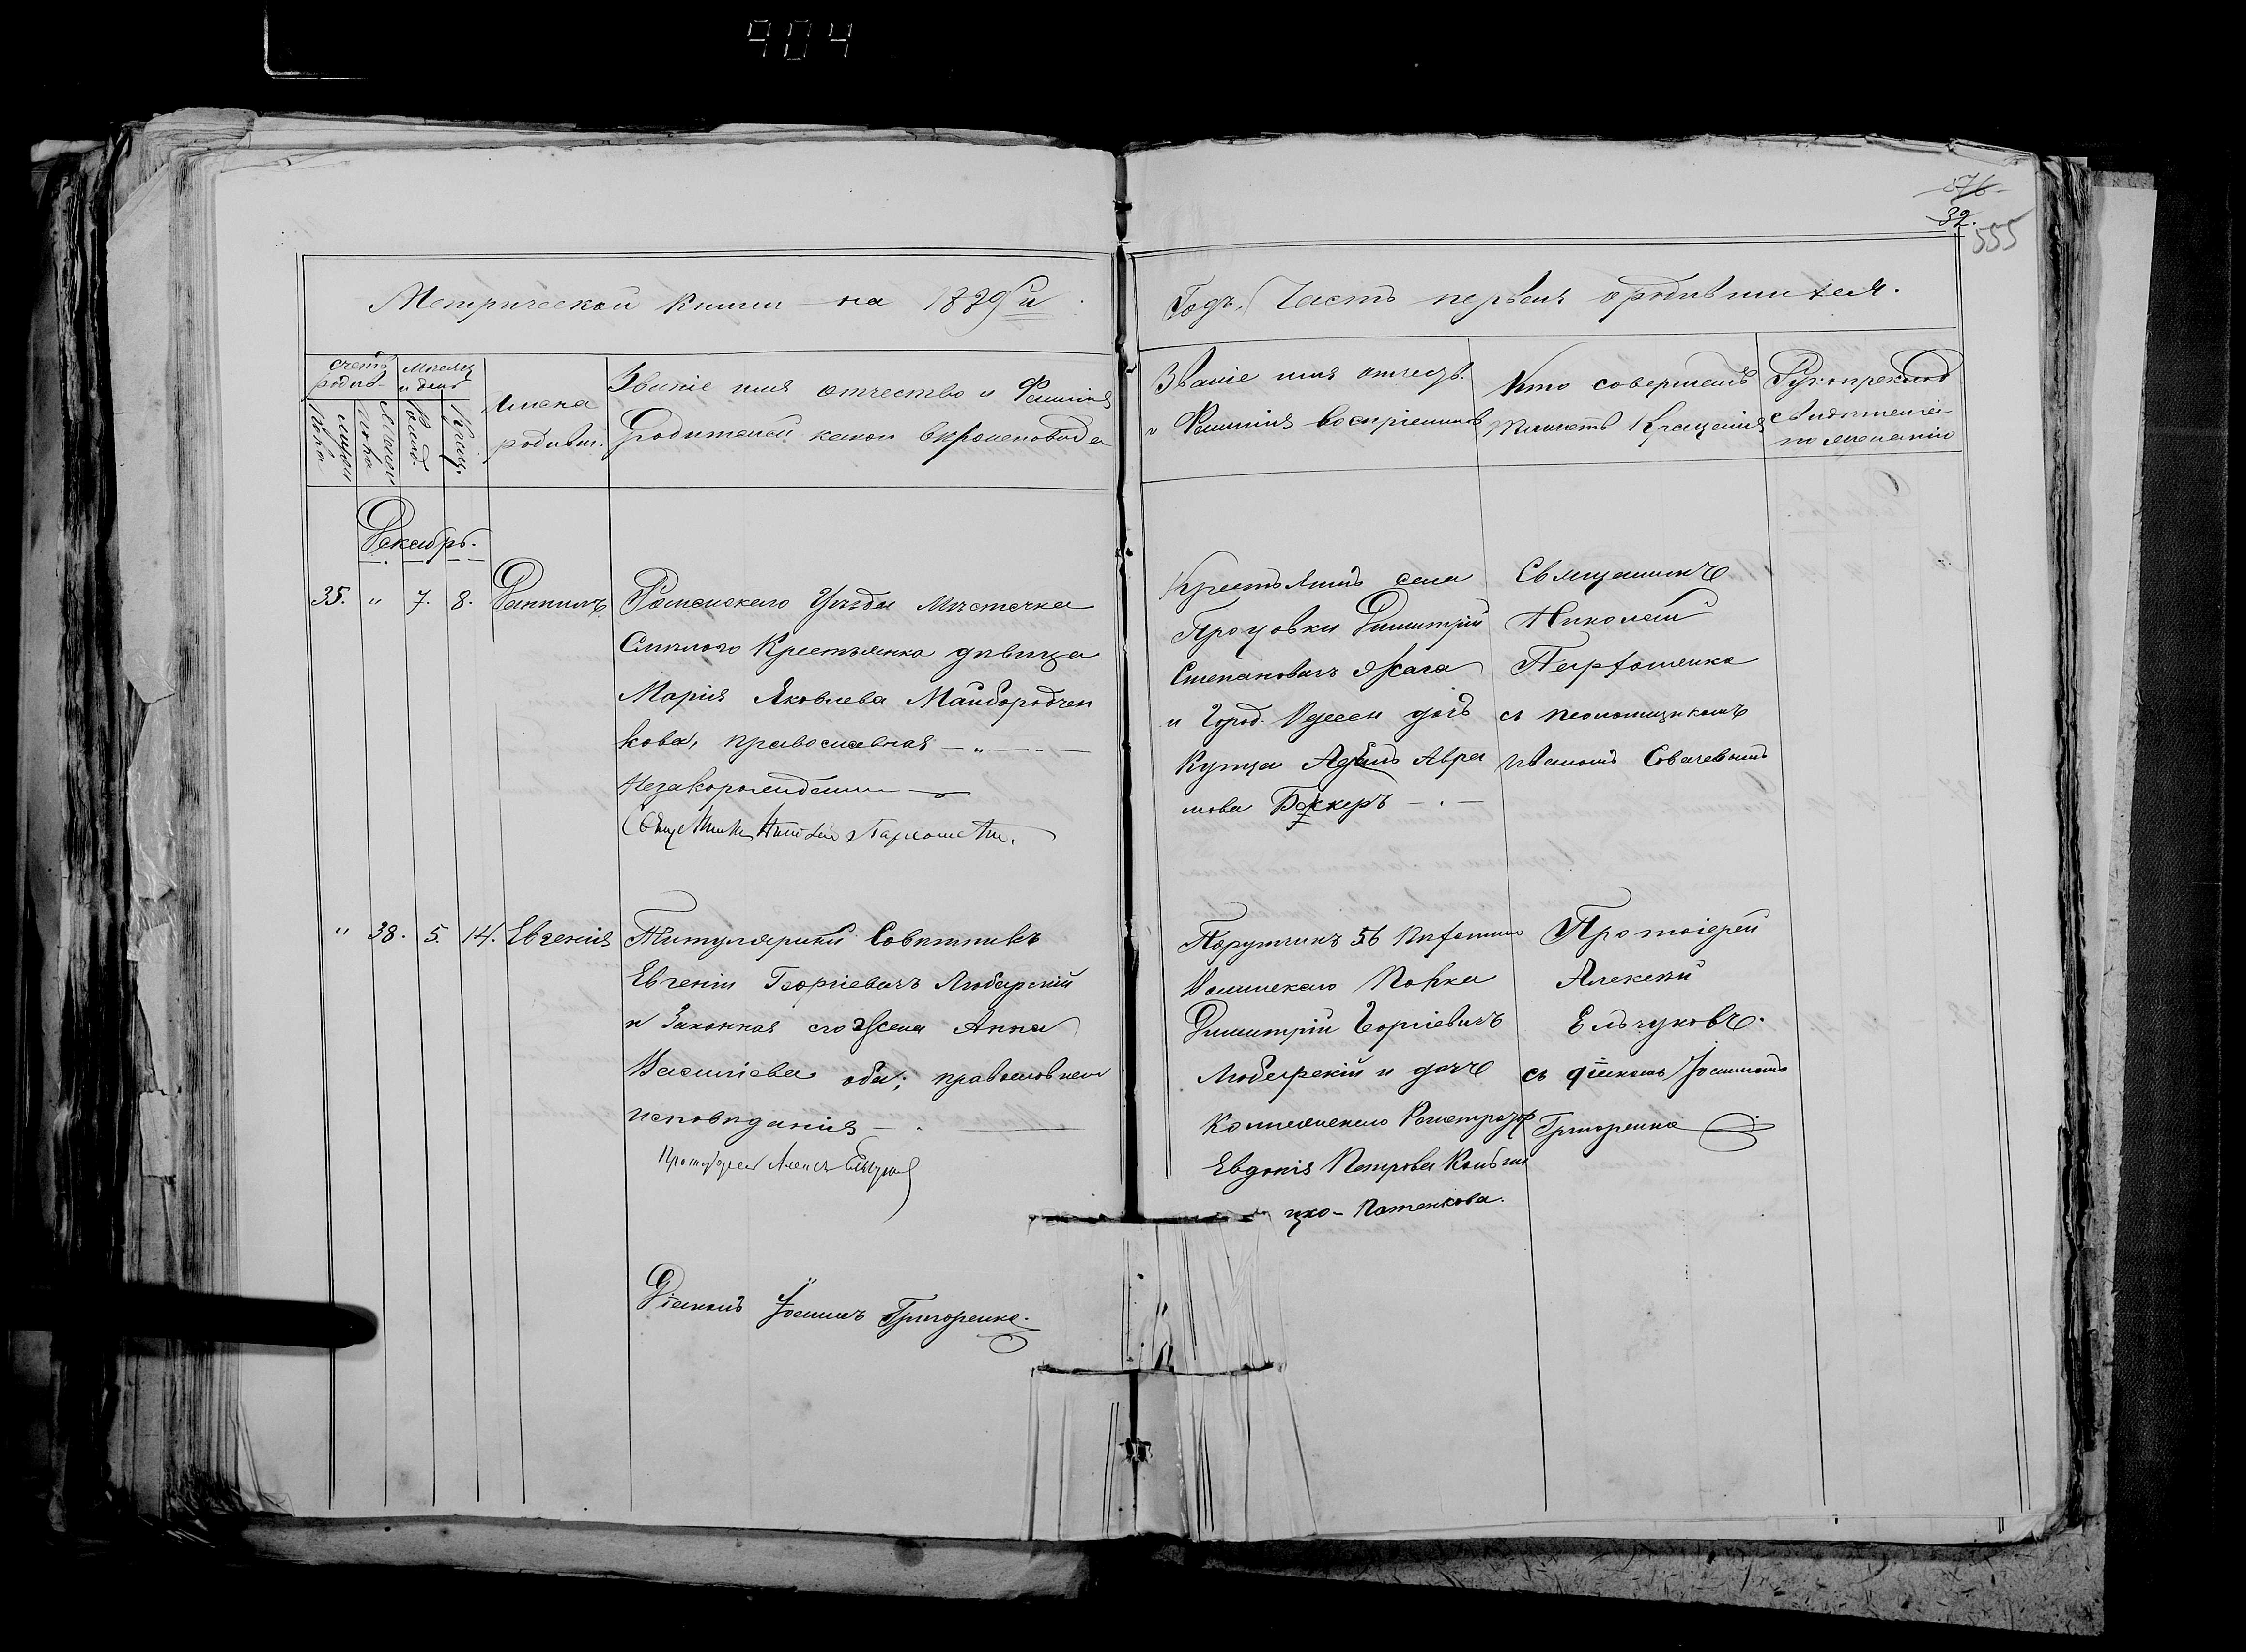 904
576
32.
555
Метрической книги на 1879 й
Годъ, Часть первая о родившихся.
Счетъ родив-
Мѣсяцъ и день
Имена родивш.
Званіе имя отчество и Фамилія
Родителей какои вѣроисповѣда
Званіе имя отчеств.
и Фамилія воспріемниковъ
Кто совершалъ
таинство Крещенія
Рукоприклад
свидѣтелей
по желанію
Декабрь.
35. " 7. 8. Даніилъ
Роменскаго Уѣзда Мѣстечка
Смѣлого Крестьянка дѣвица
Марія Яковлева Майбородчен
кова, православная
Незаконорожденный
Священникъ Николай Пархоменко.
Крестьянинъ села
Процовки Димитрій
Степановичъ Жага
и Город. Одессы дочь
Купца Адель Авра
мова Беккеръ
Священникъ
Николай
Парfоменко
съ псаломщикомъ
Иваномъ Совачевымъ
" 38. 5. 14. Евгенія
Титулярный Совѣтникъ
Евгеній Георгіевичъ Любарскій
и Законная его Жена Анна
Василіева оба, православнаго
исповѣданія
Протоіерей Алексѣй Ельчуковъ
Поручикъ 56 Пѣхотнаго
Полка
Димитрій Георгіевичъ
Любарскій и дочь
Коллежскаго Регистратор
Евдокія Петрова
цко-Потенкова.
Протоіерей
Алексѣй
Ельчуковъ.
съ діакономъ Іоанномъ
Григоренко
Діаконъ Іоаннъ Григоренко.